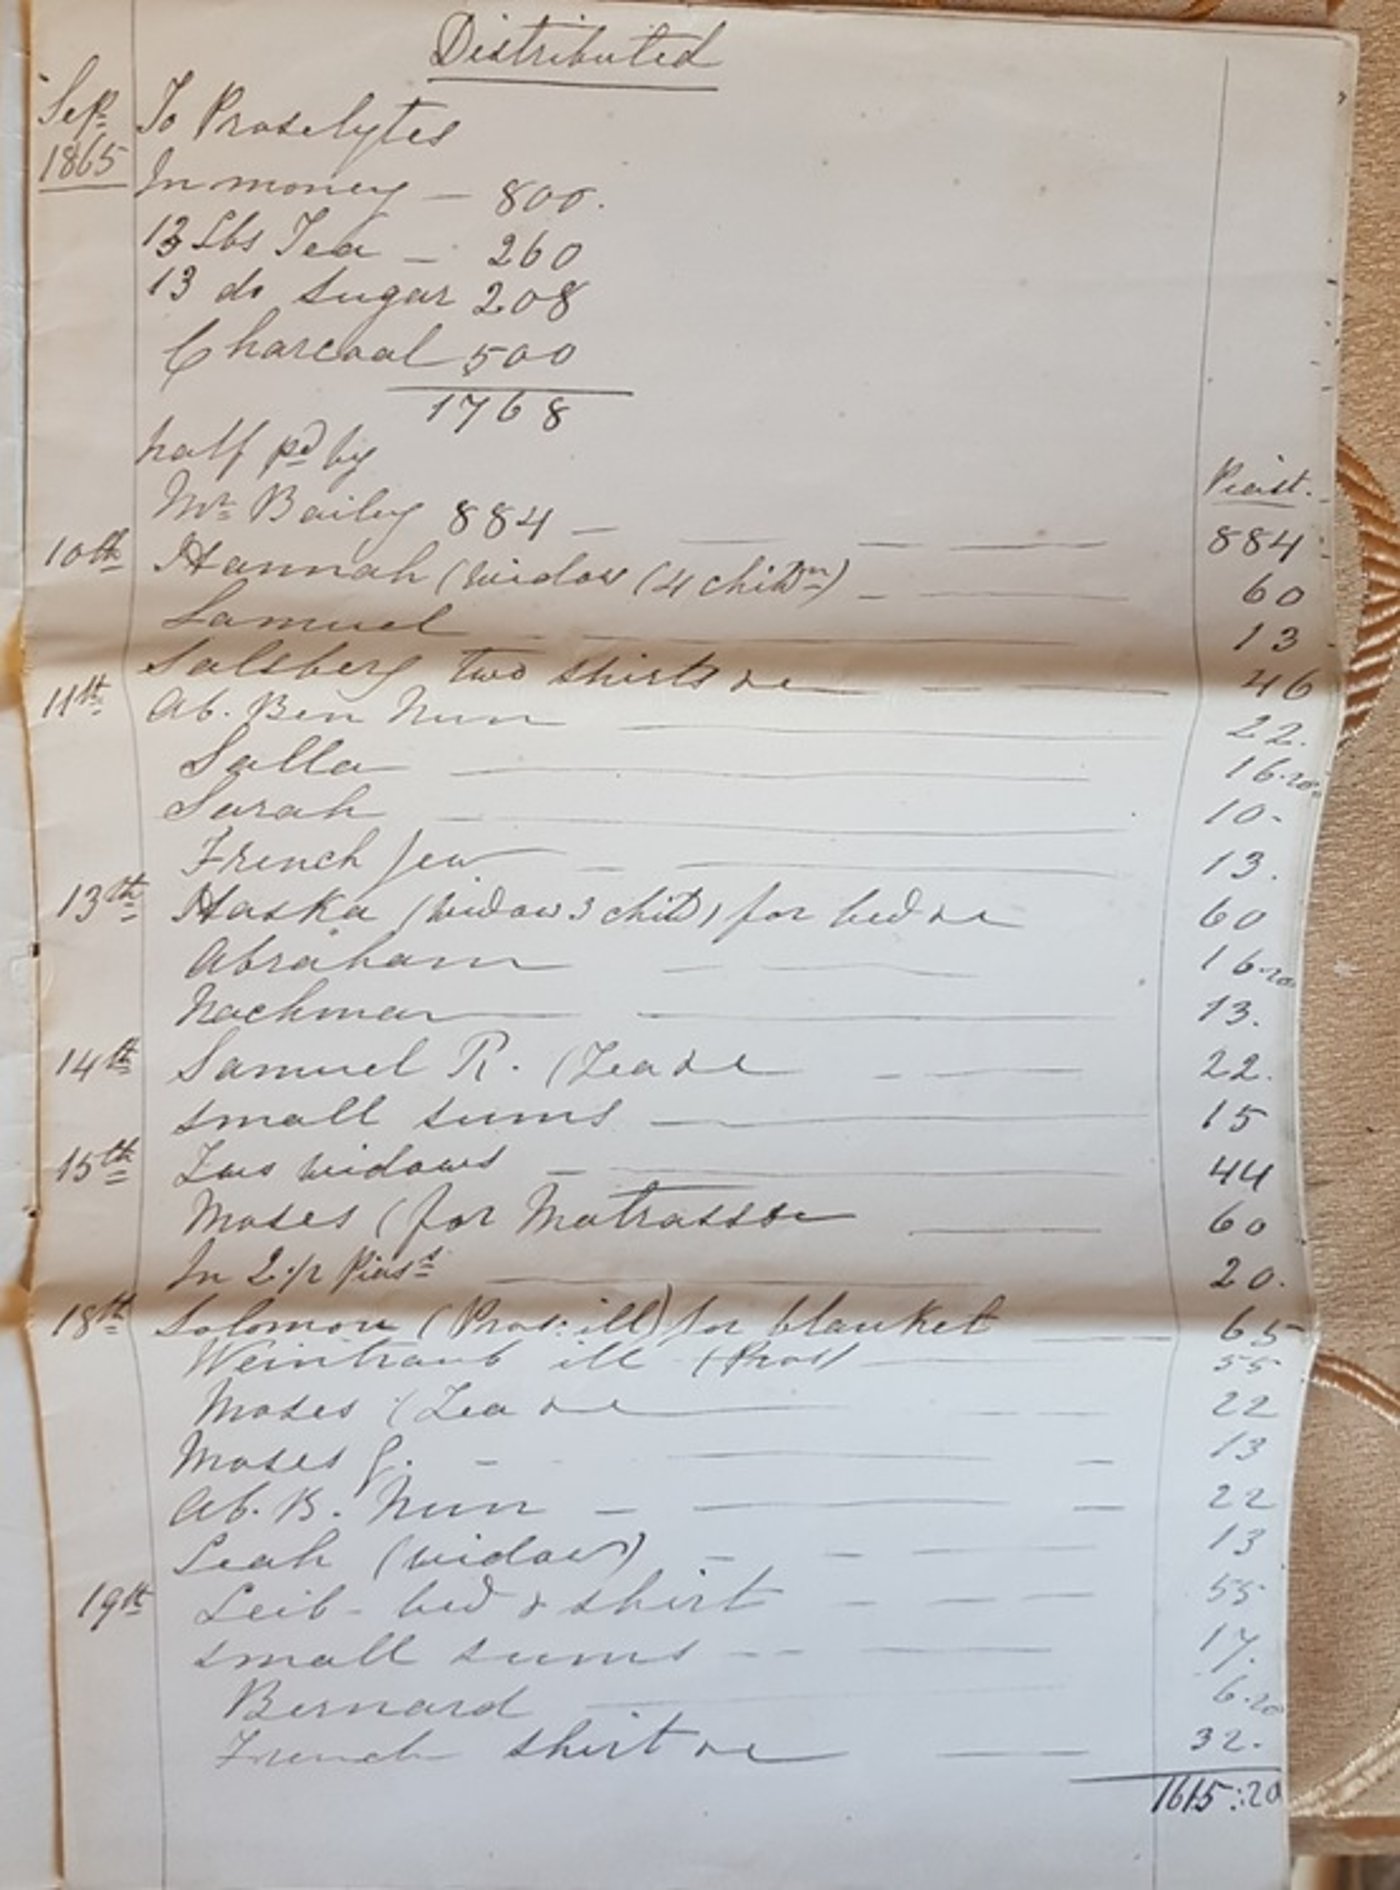 Distributed
Sep. To Proselytes
1865 In money — 800.
13 Lbs Tea — 260
13 do Sugar 208
Charcoal 500
1768
half pd by
Piast.
Mr Bailey 884 — 884
10th Hannah (widow (4 childn) — 60
Samuel — 13
Salsberg two shirts &c — 46
11th Ab. Ben Nun — 22.
Salla — 16.20
Sarah — 10.
French Jew — 13.
13th Haska (widow 3 child) for bed &c 60
Abraham — 16.20
Nachman — 13.
14th Samuel R. (Tea &c — 22.
small sums — 15
15th Two widows — 44
Moses (for Matrasse — 60
In 2 1/2 Piasts — 20.
18th Solomon (Pros: ill) for blanket — 65
Weintraub ill (Pros) — 55
Moses (Tea &c — 22
Moses G. — 13
Ab. B. Nun — 22
Leah (widow) — 13
19th Leib - bed & shirt — 55
small sums — 17.
Bernard — 6.20
French shirt &c — 32.
1615:20